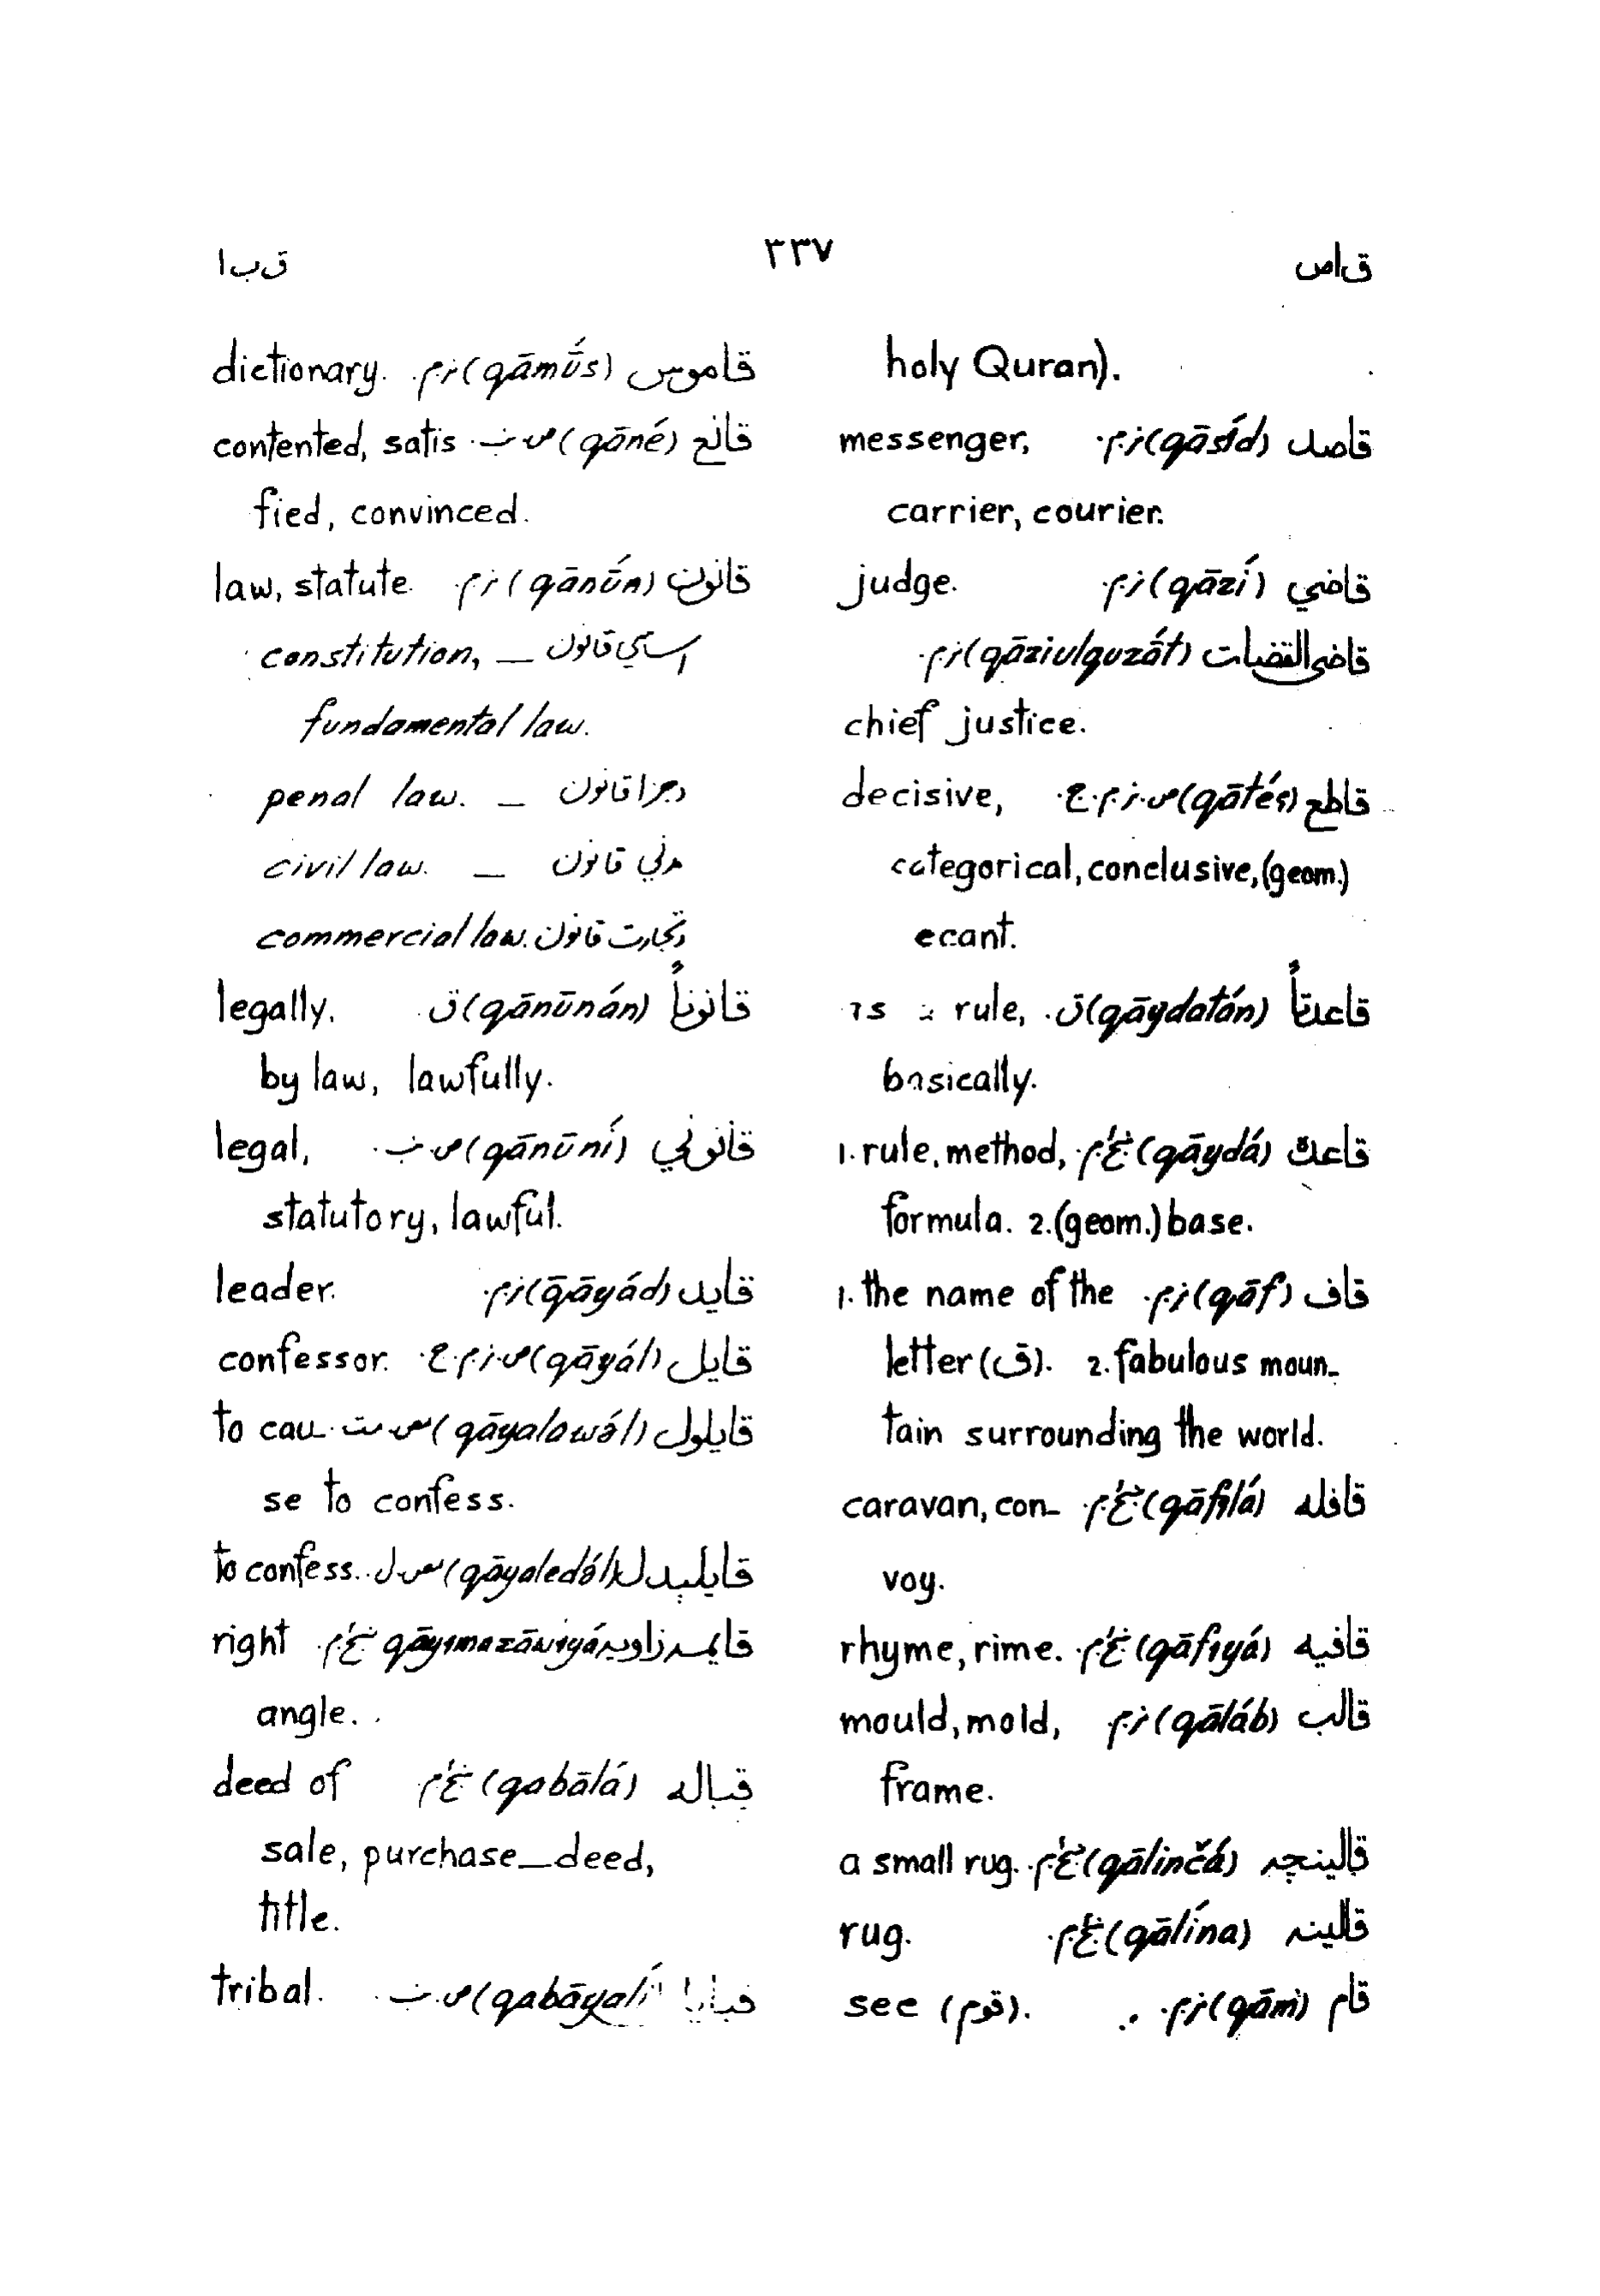 قاص ٣٣٧ ق ب ا
holy Quran).
قاصد (qāsíd) ن.م. messenger,
carrier, courier.
قاضي (qāzí) ن.م. judge.
قاضي القضات (qāziulquzā́t) ن.م.
chief justice.
قاطع (qātés) ص.ن.م.ج. decisive,
categorical, conclusive, (geom.)
ecant.
قاعدتاً (qāydatán) ق. rule,
basically.
قاعده (qāydá) 1. rule, method,
formula. 2. (geom.) base.
قاف (qāf) ن.م. 1. the name of the
letter (ق). 2. fabulous moun-
tain surrounding the world.
قافله (qāfilá) caravan, con-
voy.
قافيه (qāfiyá) rhyme, rime.
قالب (qāláb) ن.م. mould, mold,
frame.
قالينچه (qālinčá) a small rug.
قالينه (qālína) rug.
قام (qām) ن.م. see (قوم).
قاموس (qāmū́s) ن.م. dictionary.
قانع (qāné) ص.ب. contented, satis
fied, convinced.
قانون (qānū́n) ن.م. law, statute.
اساسي قانون _ constitution,
fundamental law.
د جزا قانون _ penal law.
مدني قانون _ civil law.
د تجارت قانون commercial law.
قانوناً (qānūnán) ق legally,
by law, lawfully.
قانوني (qānūní) ص.ب. legal,
statutory, lawful.
قايد (qāyád) ن.م. leader.
قايل (qāyál) ص.ن.م.ج. confessor.
قايلول (qāyalawə́l) to cau-
se to confess.
قايلېدل (qāyaledə́l) to confess.
قايمه زاويه qāyimazāwiyá right
angle.
قباله (qabālá) deed of
sale, purchase_deed,
title.
(qabāyalí) ص.ب. tribal.